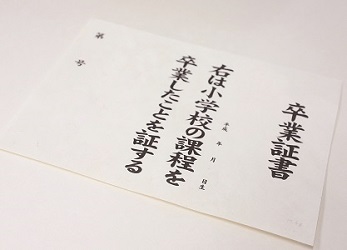 卒業証書
平成　年　月　日生
右は小学校の課程を
卒業したことを証する
第　号